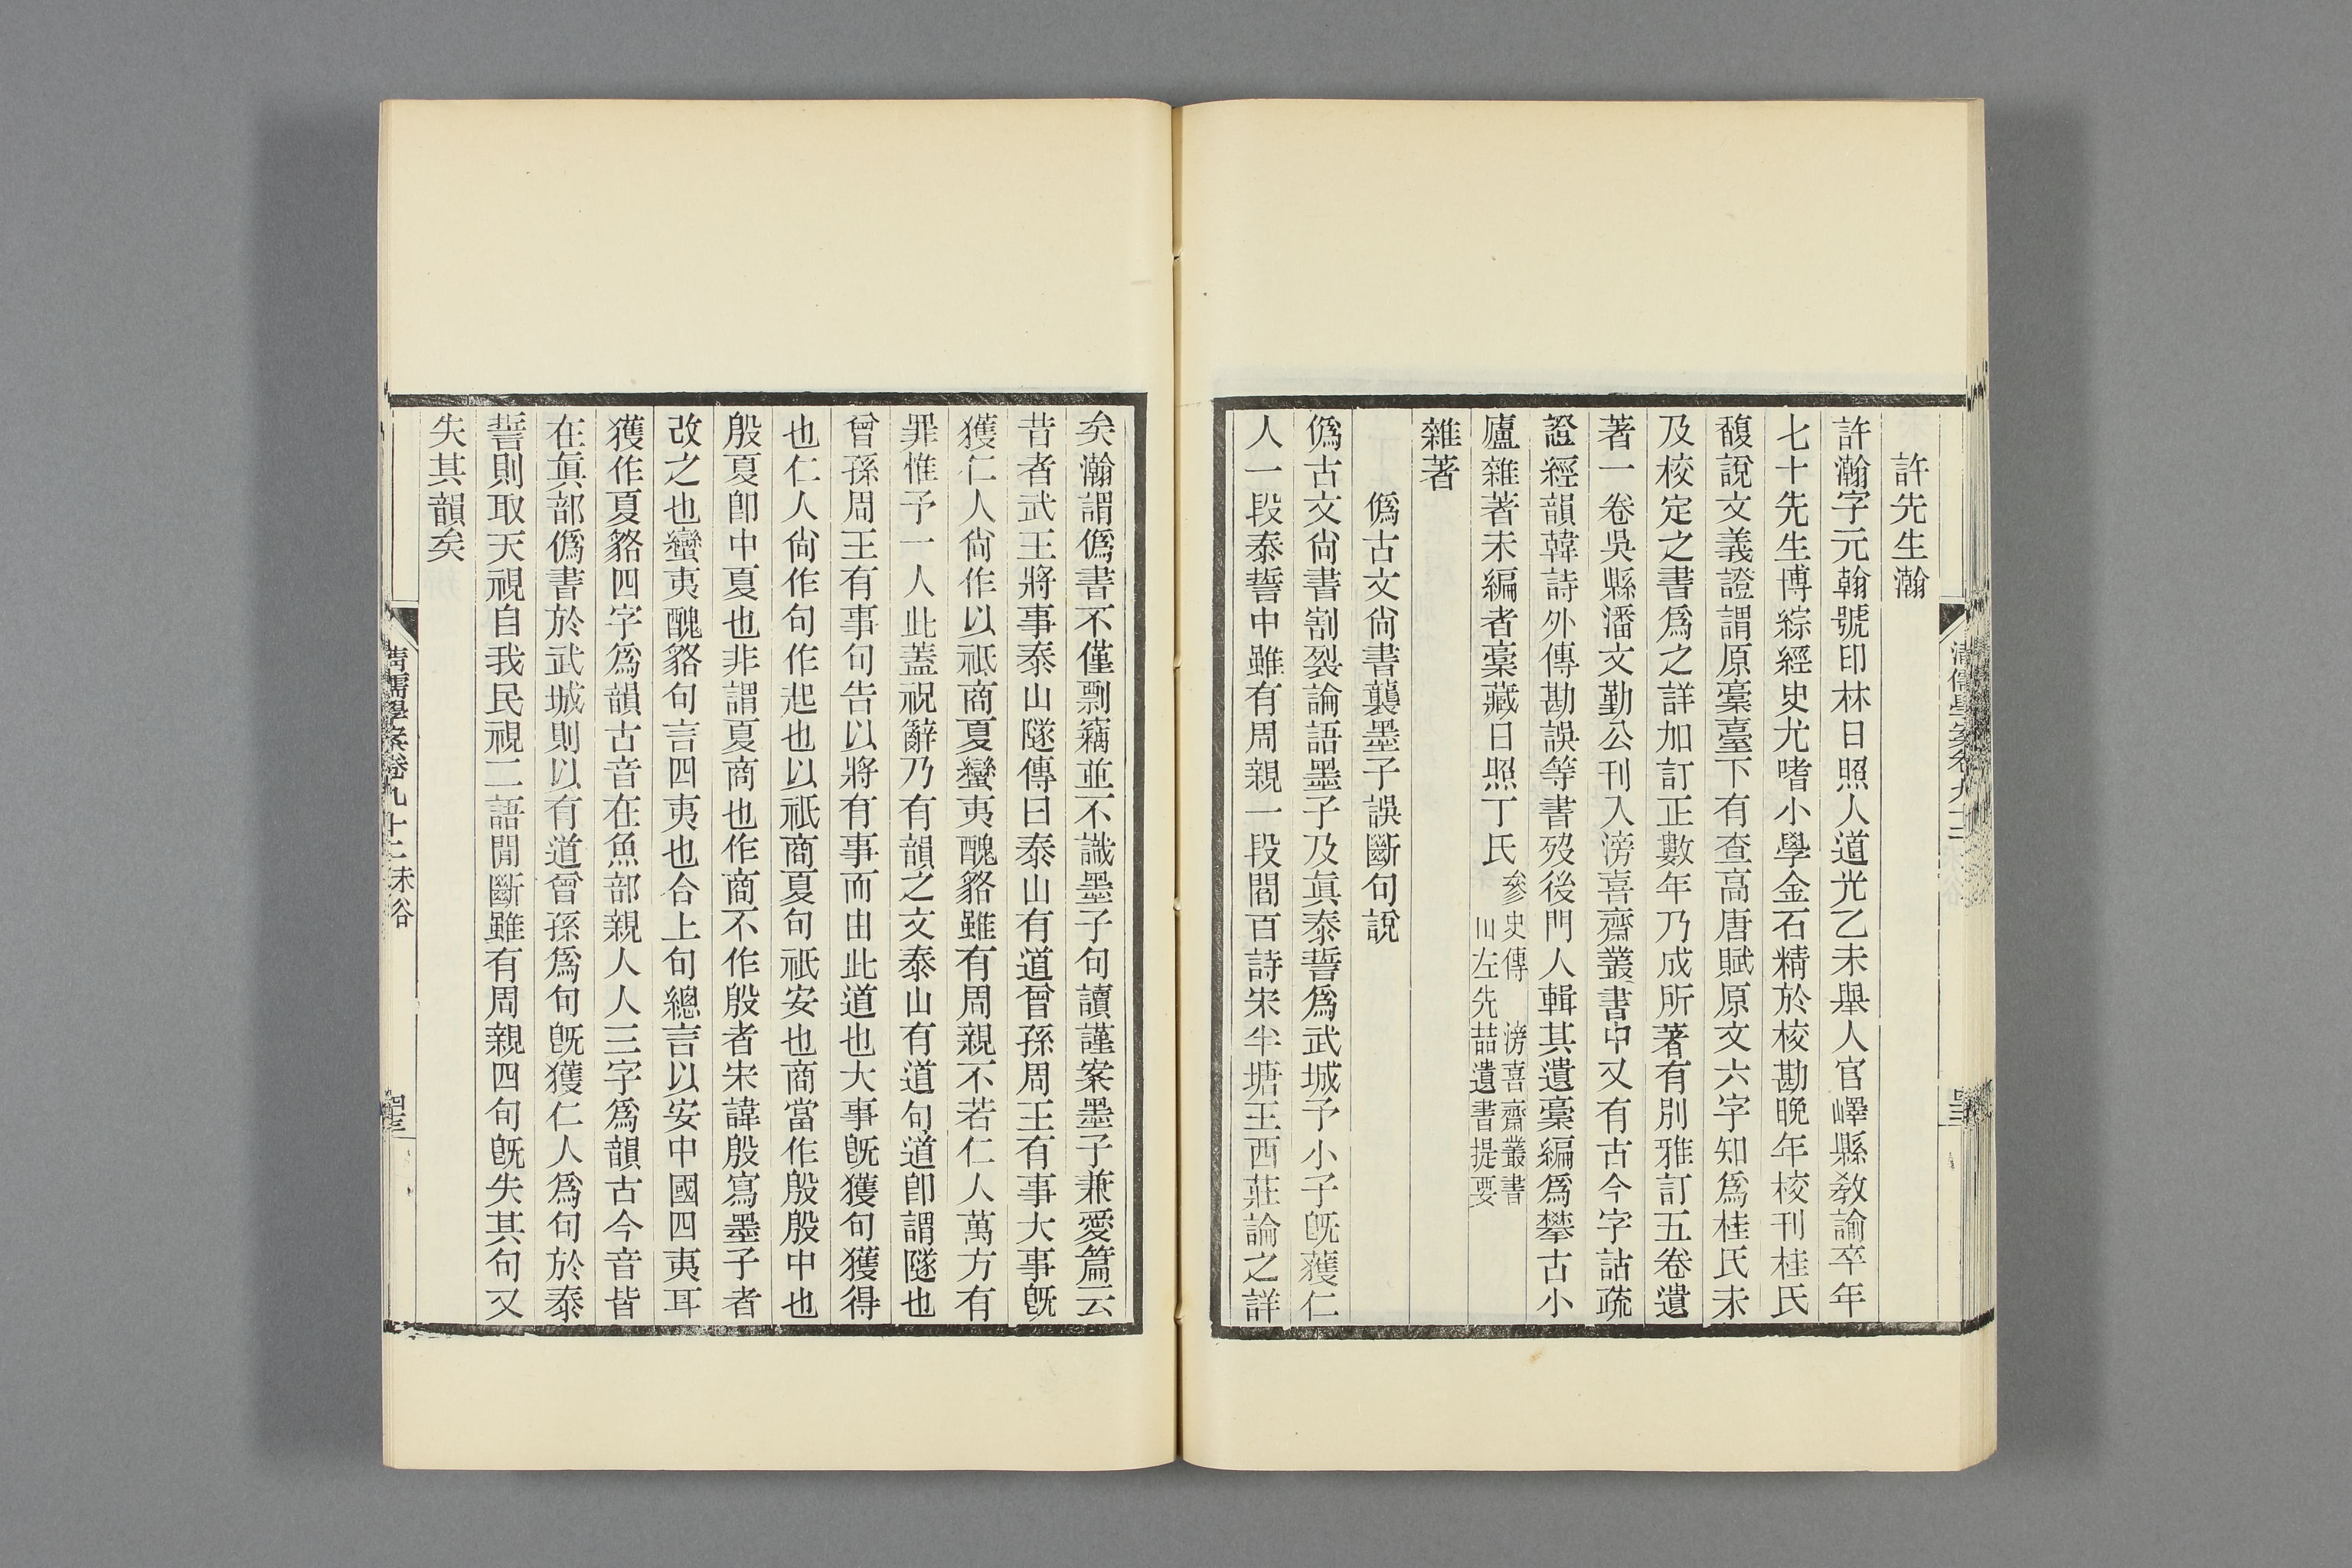 許先生瀚
許瀚字元翰號印林日照人道光乙未舉人官嶧縣教諭卒年
七十先生博綜經史尤嗜小學金石精於校勘晚年校刊桂氏
馥說文義證謂原稾臺下有查高唐賦原文六字知爲桂氏未
及校定之書爲之詳加訂正數年乃成所著有別雅訂五卷遺
著一卷吳縣潘文勤公刊入滂喜齋叢書中又有古今字詁疏
證經韻韓詩外傳勘誤等書歿後門人輯其遺稾編爲攀古小
廬雜著未編者稾藏日照丁氏參史傳　滂喜齋叢書
山左先喆遺書提要
雜著
僞古文尙書襲墨子誤斷句說
僞古文尙書割裂論語墨子及眞泰誓爲武城予小子旣獲仁
人一段泰誓中雖有周親一段閻百詩宋半塘王西莊論之詳
矣瀚謂僞書不僅剽竊並不識墨子句讀謹案墨子兼愛篇云
昔者武王將事泰山隧傳曰泰山有道曾孫周王有事大事旣
獲仁人尙作以祗商夏蠻夷醜貉雖有周親不若仁人萬方有
罪惟予一人此蓋祝辭乃有韻之文泰山有道句道卽謂隧也
曾孫周王有事句告以將有事而由此道也大事旣獲句獲得
也仁人尙作句作起也以祗商夏句祗安也商當作殷殷中也
殷夏卽中夏也非謂夏商也作商不作殷者宋諱殷寫墨子者
改之也蠻夷醜貉句言四夷也合上句總言以安中國四夷耳
獲作夏貉四字爲韻古音在魚部親人人三字爲韻古今音皆
在眞部僞書於武城則以有道曾孫爲句旣獲仁人爲句於泰
誓則取天視自我民視二語閒斷雖有周親四句旣失其句又
失其韻矣
清儒學案卷九十二 未谷